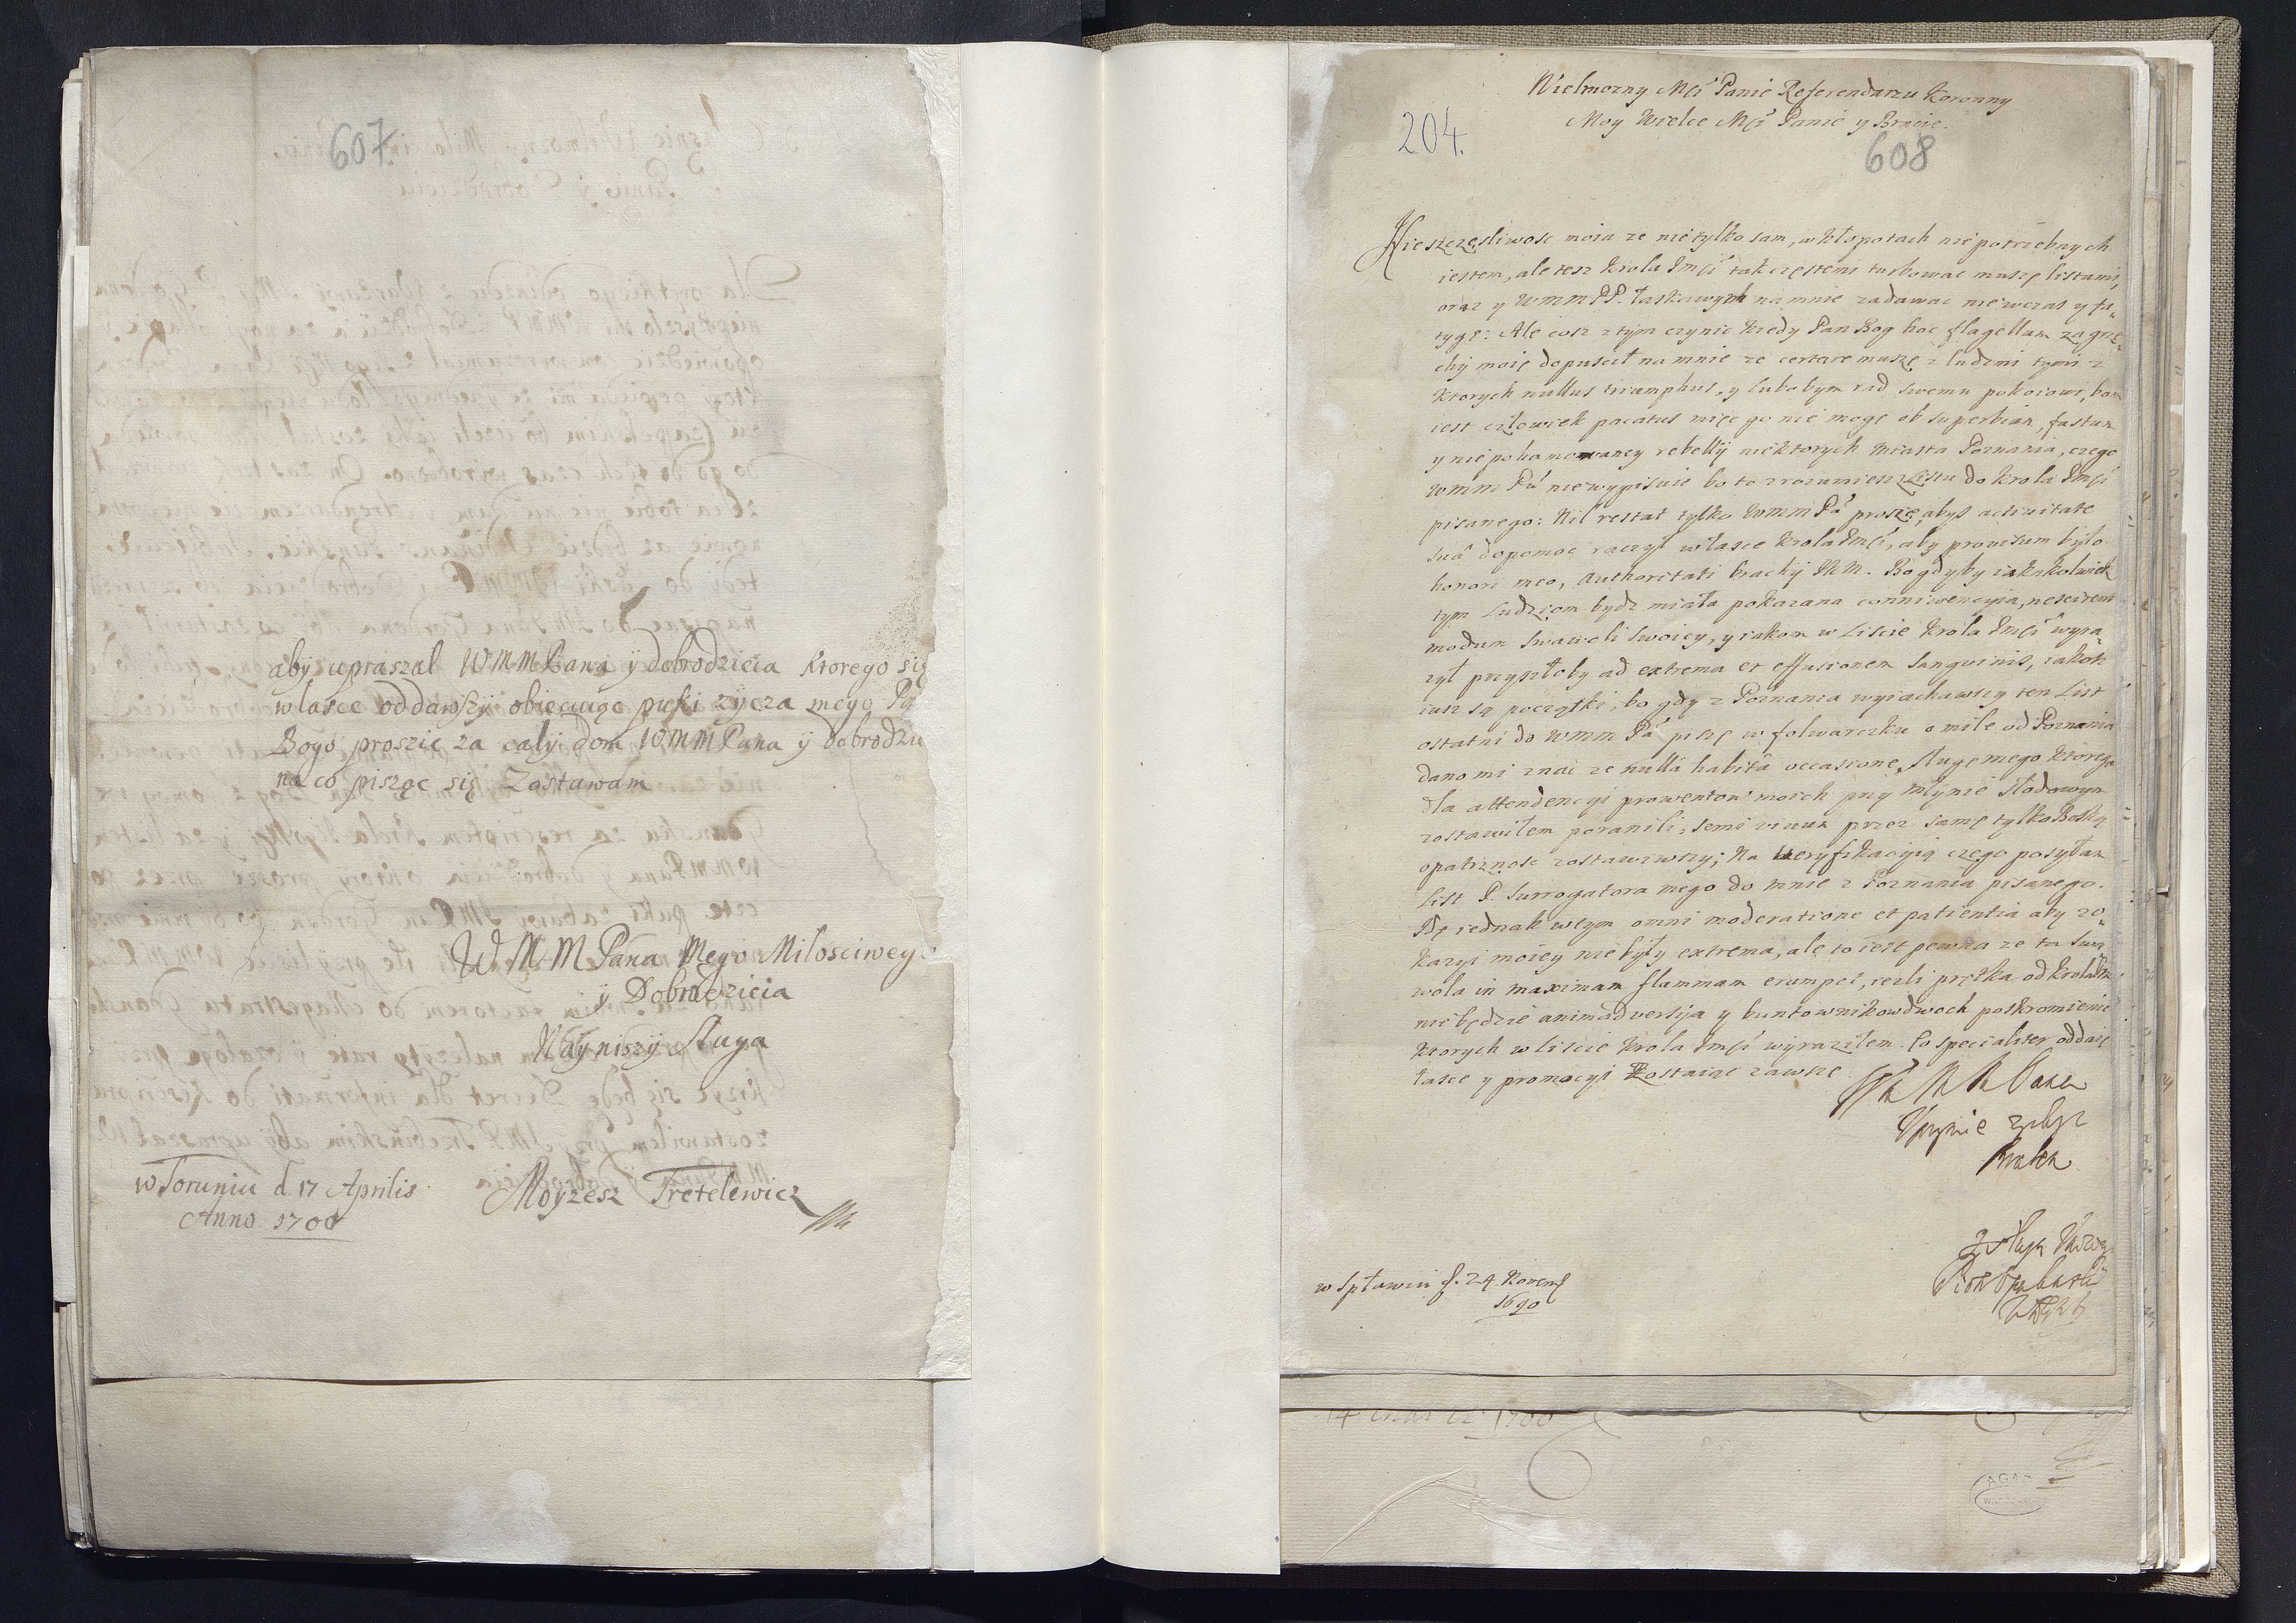 607
aby upraszal WMMPana ÿ dobrodzieia ktorego się
w łasce oddawszÿ obiecuięc puki zÿcza mego Pa
Boga proszic za całÿ dom WMMPana ÿ dobrodzi
na co pisząc się zostawam
WMMPana Mego Miłosciweg
ÿ Dobrodzieia
Nayniszÿ Sługa
w Toruniu d. 17 Aprilis
Anno 1700
Moÿzesz Tretelewicz
204.
Wielmozny Mći Panie Referendarzu Koronny
Moy Wielce Mći Panie y Bracie.
608
Nieszczęsliwosc moia ze nie tylko sam, w kłopotach nie potrzebnych
iestem, ale tesz Krola Jmći tak częstemi turbowac muszę listami,
oraz y WMMPP. łaskawych na mnie zadawac niewczas y fa„
tygę: Ale cosz z tym czynic kiedy Pan Bog hoc flagellum za grze„
chy moie dopuscił na mnie ze certare muszę z ludzmi tymi z
ktorych nullus triumphus, y lubobym rad swemu pokoiowi, bom
iest człowiek pacatus mięc go nie mogę ob superbiam, fastum
y nie pohamowaney rebellÿ niektorych Miasta Poznania, czego
WMM Pu niewypisuie bo to zrozumiesz z Listu do Krola Jmći
pisanego: Nil restat tylko WMM Pa proszę, abys activitate
suâ dopomoc raczył w łasce Krola Jmći, aby provisum było
honori meo, Authoritati brachÿ JKM. Bo gdyby iakakolwiek
tym Ludziom bydz miała pokazana conniwencyia, nescirent
modum swawoli swoiey, y iakom w Liscie Krola Jmći wyra„
ził przyszłoby ad extrema et effusionem sanguinis, iakosz
iusz są początki, bo gdy z Poznania wyiachawszy ten List
ostatni do WMM Pa piszę w folwarczku o mile od Poznania
dano mi znac ze nullâ habitâ occasione, sługę mego ktorego
dla attendencyi prowentow moich przy Młynie Słodowym
zostawiłem poranili, semi vivum przez samę tylko Boską
opatrznosc zostawiwszy; Na weryfikacyią czego posyłam
List P. Surrogatora mego do mnie z Poznania pisanego.
Bę iednak w tym omni moderatione et patientia aby z o„
kazyi moiey nie były extrema, ale to iest pewna ze ta swa
wola in maximam flammam erumpet, iezli prętka od Krola Jm
nie będzie animadversÿa y buntownikow dwoch poskromienie
ktorych w liscie Krola Jmći wyraziłem. Co specialiter oddaię
łasce y promocyi zostaiąc zawsze
WM M Pana
Uprzymie zyczl
Bratem
y sługą
w Spławiu d. 24 Novemb
1690
14 1700
AGAD